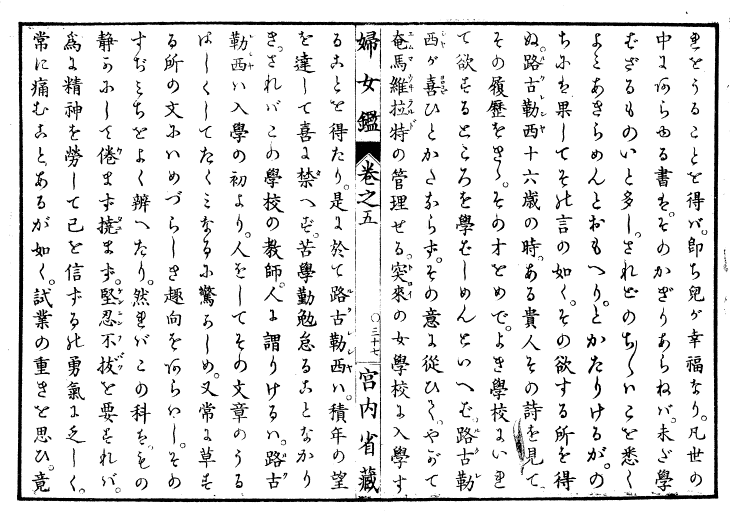 れをうることを得バ。即ち兒が幸福なり。凡世の
中にあらゆる書を。そのかぎりあらねバ。未だ學
ばざるものいと多し。されどのちゝハこを悉く
よみあきらめんとおもへり。とかたりけるが。の
ちには果してその言の如く。その欲する所を得
ぬ。路古勒西十六歳の時。ある貴人その詩を見て
その履歴をきゝ。その才をめで。よき學校にいれ
て欲するところを學ばしめんといへば。路古勒
西が喜ひとかたならず。その意に從ひて。やがて
奄馬維拉特の管理せる。突來の女學校に入學す
婦女鑑 卷之五 〇三十七 宮内省藏
ることを得たり。是に於て路古勒西ハ。積年の望
を達して喜に禁へず。苦學勤勉怠ることなかり
き。されバこの學校の教師。人に謂りけるハ。路古
勒西ハ入學の初より。人をしてその文章のうる
はしくしてたくミなるに驚かしめ。又常に草す
る所の文にハめづらしき趣向をあらハし。その
すぢミちをよく辨へたり。然れバこの科を。もの
靜かにして倦まず撓まず。堅忍不拔を要すれバ。
爲に精神を勞して己を信ずるの勇氣に乏しく。
常に痛むことあるが如く。試業の重きを思ひ。竟